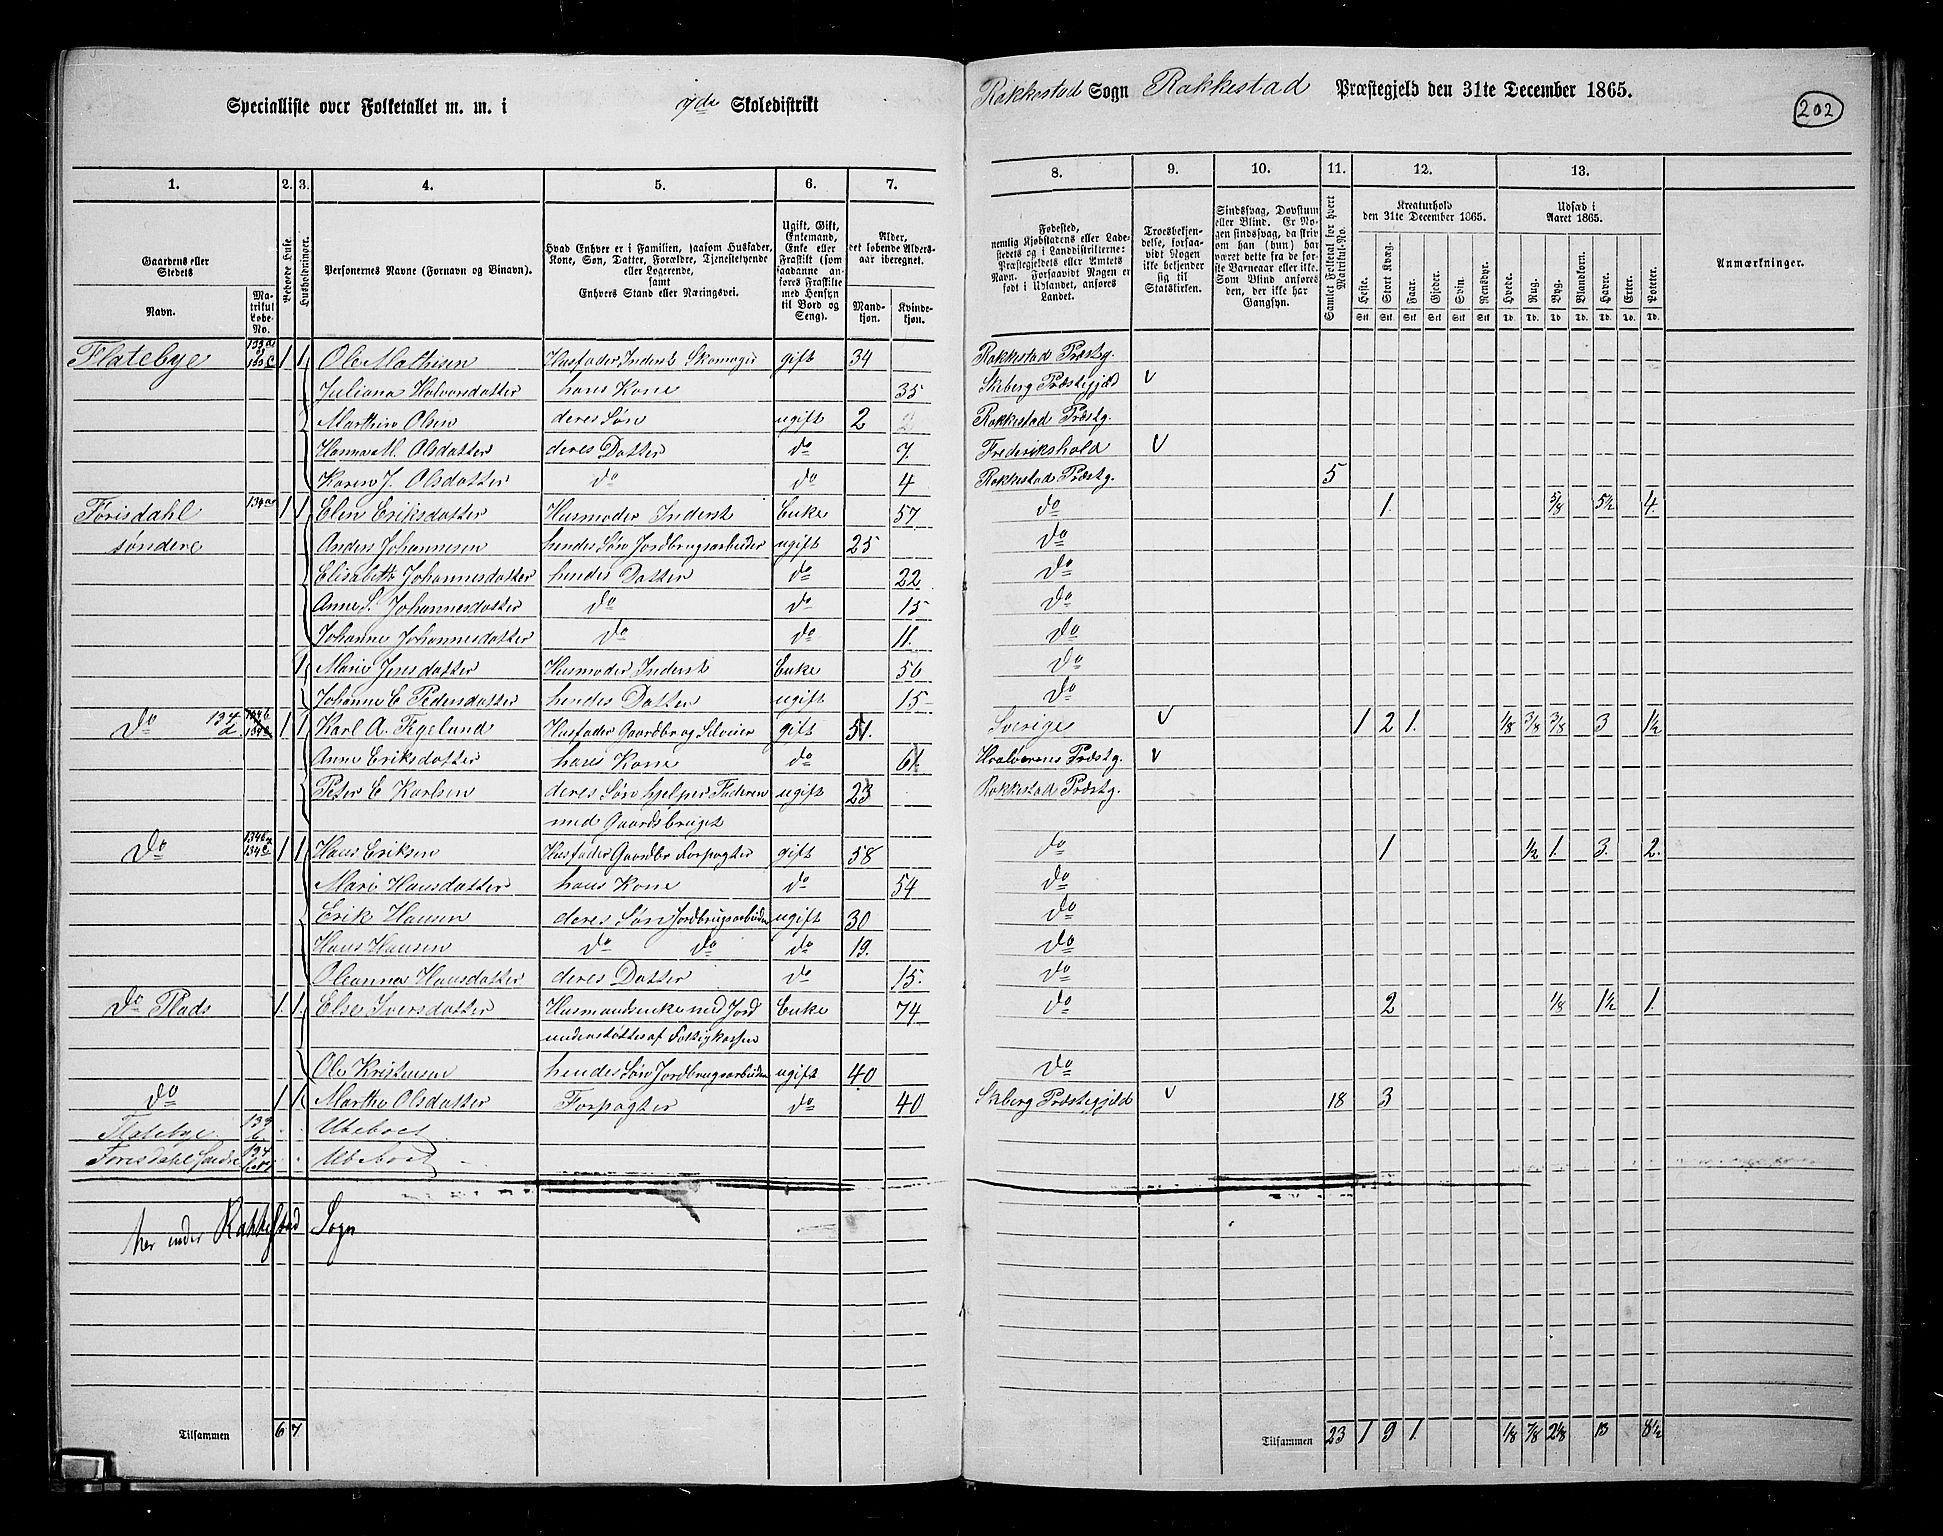 Specialliste over Folketallet m. m. i 7de Skoledistrikt Rakkestad Sogn Rakkestad Præstegjeld den 31te December 1865.
202
1. 2. 3. 4. 5. 6. 7. 8. 9. 10. 11. 12. 13.
Gaardens eller Stedets
Navn.
Matrikul Løbe-No.
Beboede Huse.
Husholdninger.
Personernes Navne (Fornavn og Binavn).
Hvad Enhver er i Familien, saasom Husfader, Kone, Søn, Datter, Forældre, Tjenestetyende eller Logerende, samt Enhvers Stand eller Næringsvei.
Ugift, Gift, Enkemand, Enke eller Fraskilt (som saadanne anføres Fraskilte med Hensyn til Bord og Seng).
Alder, det løbende Aldersaar iberegnet.
Mandkjøn. Kvindekjøn.
Fødested, nemlig Kjøbstadens eller Ladestedets og i Landdistrikterne: Præstegjeldets eller Amtets Navn. Forsaavidt Nogen er født i Udlandet, anføres Landet.
Troesbekjendelse, forsaavidt Nogen ikke bekjender sig til Statskirken.
Sindssvag, Døvstum eller Blind. Er Nogen sindssvag, da skrives om han (hun) har været dette fra de første Barneaar eller ikke. Som Blind anføres den, der ikke har Gangsyn.
Samlet Folketal for hvert Matrikul-No.
Kreaturhold den 31te December 1865.
Heste. Stort Kvæg. Faar. Gjeder. Svin. Rensdyr.
Stk Stk Stk Stk Stk Stk
Udsæd i Aaret 1865.
Hvede. Rug. Byg. Blandkorn. Havre. Erter. Poteter.
Td. Td. Td. Td. Td. Td. Td.
Anmærkninger.
Flatebye 1 1 Ole Mathisen Husfader Inderst Skomager gift 34 Rakkestad Præstg.
Juliana Halvorsdatter hans Kone 35 Skeberg Præstegjeld v
Marthin Olsen deres Søn ugift 2 Rakkestad Præstg.
Hanna M. Olsdatter deres Datter do 7. Frederikshald v
Karen J. Olsdatter do do 4 Rakkestad Præstg. 5
Førisdahl 134a 1 1 Elen Eriksdatter Husmoder Inderst Enke 57 do 1. 5/8 5½ 4.
søndere Anders Johannesen hendes Søn Jordbrugsarbeider ugift 25 do
Elisabeth Johannesdatter hendes Datter do 22 do
Anne S. Johannesdatter do do 15 do
Johanne Johannesdatter do do 11. do
1 Marie Jensdatter Husmoder Inderst Enke 50 do
Johanne E Pedersdatter hendes Datter ugift 15 do
do 1 1 Karl A. Tegelund Husfader Gaardbr og Selveier gift 51. Sverige v 1 2 1. 1/8 3/8 3/8 3 1½
Anne Eriksdatter hans Kone do 61 Hvaløernes Præstg. v
Peter E Karlsen deres Søn hjelper Faderen ugift 23 Rakkestad Præstg.
med Gaardsbruget
do 1 1 Hans Eriksen Husfader Gaardbr Forpagter gift 58 do 1 ½ 1. 3. 2.
Mari Hansdatter hans Kone do 54 do
Erik Hansen deres Søn Jordbrugsarbeider ugift 30 do
Hans Hansen do do do 19. do
Oleanna Hansdatter deres Datter do 15. do
do Plads 1. 1. Else Iversdatter Husmandsenke med Jord Enke 74 do 2 1/8 1½ 1.
understøttes af Fattigkassen
Ole Kristensen hendes Søn Jordbrugsarbeider ugift 40 do
do 1 1 Marthe Olsdatter Forpagter do 40 Skeberg Præstegjeld v 18 3
Flatebye Ubeboet
Førisdahl Søndre Ubeboet
her under Rakkestad Sogn
Tilsammen 6 7 Tilsammen 23 1 9 1. 1/8 7/8 2 1/8 13 8½